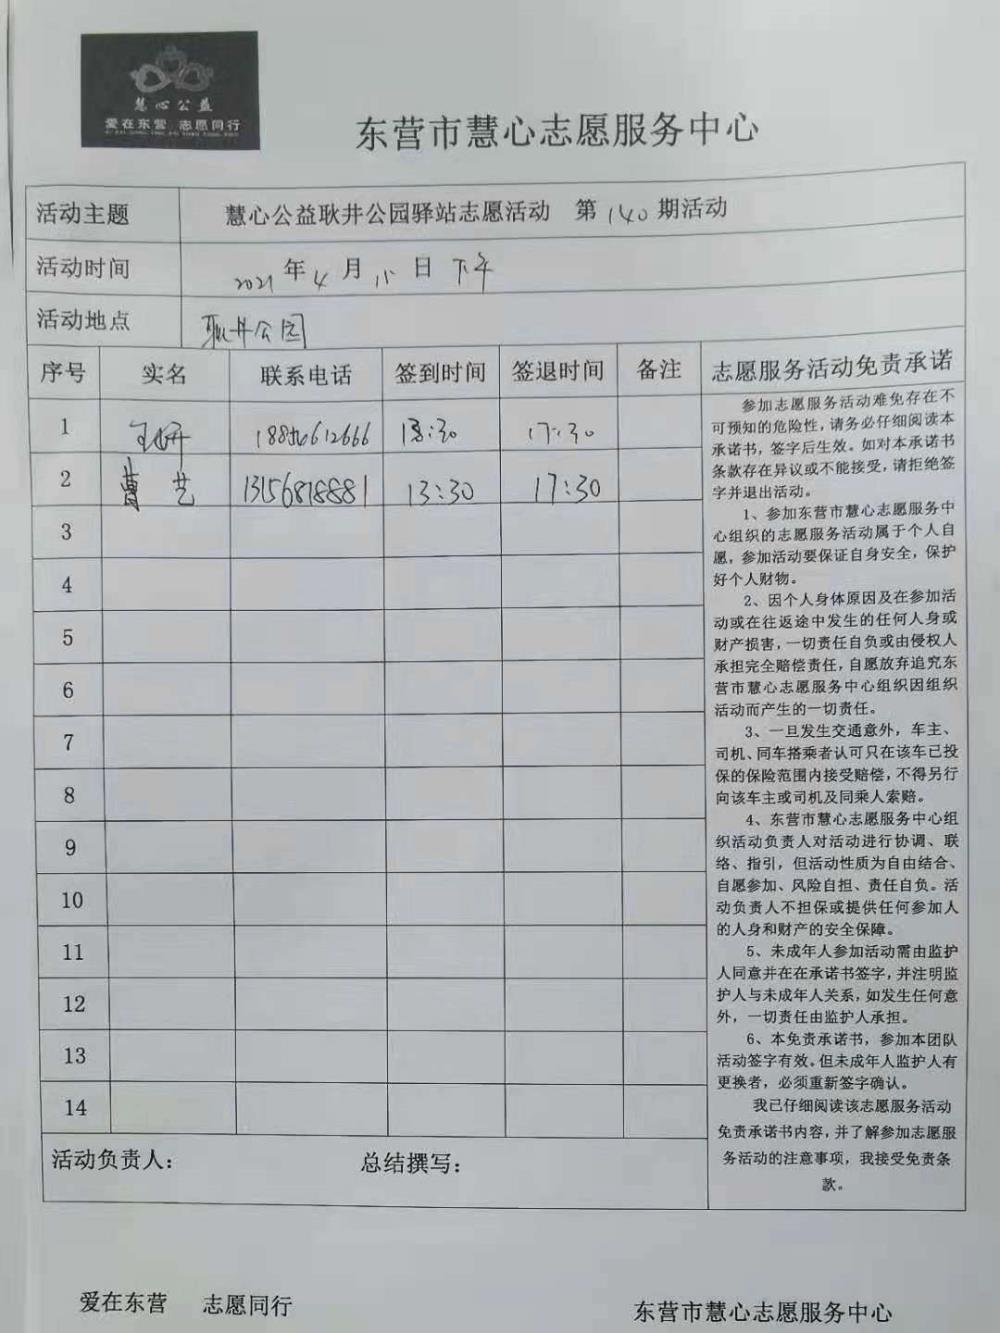 慧心公益
爱在东营 志愿同行
东营市慧心志愿服务中心
活动主题 慧心公益耿井公园驿站志愿活动 第140期活动
活动时间 2021年4月15日 下午
活动地点 耿井公园
序号 实名 联系电话 签到时间 签退时间 备注
1 13:30 17:30
2 曹艺 13156818881 13:30 17:30
3
4
5
6
7
8
9
10
11
12
13
14
活动负责人： 总结撰写：
志愿服务活动免责承诺
参加志愿服务活动难免存在不
可预知的危险性，请务必仔细阅读本
承诺书，签字后生效。如对本承诺书
条款存在异议或不能接受，请拒绝签
字并退出活动。
1、参加东营市慧心志愿服务中
心组织的志愿服务活动属于个人自
愿，参加活动要保证自身安全，保护
好个人财物。
2、因个人身体原因及在参加活
动或在往返途中发生的任何人身或
财产损害，一切责任自负或由侵权人
承担完全赔偿责任，自愿放弃追究东
营市慧心志愿服务中心组织因组织
活动而产生的一切责任。
3、一旦发生交通意外，车主、
司机、同车搭乘者认可只在该车已投
保的保险范围内接受赔偿，不得另行
向该车主或司机及同乘人索赔。
4、东营市慧心志愿服务中心组
织活动负责人对活动进行协调、联
络、指引，但活动性质为自由结合、
自愿参加、风险自担、责任自负。活
动负责人不担保或提供任何参加人
的人身和财产的安全保障。
5、未成年人参加活动需由监护
人同意并在在承诺书签字，并注明监
护人与未成年人关系，如发生任何意
外，一切责任由监护人承担。
6、本免责承诺书，参加本团队
活动签字有效。但未成年人监护人有
更换者，必须重新签字确认。
我已仔细阅读该志愿服务活动
免责承诺书内容，并了解参加志愿服
务活动的注意事项，我接受免责条
款。
爱在东营 志愿同行 东营市慧心志愿服务中心